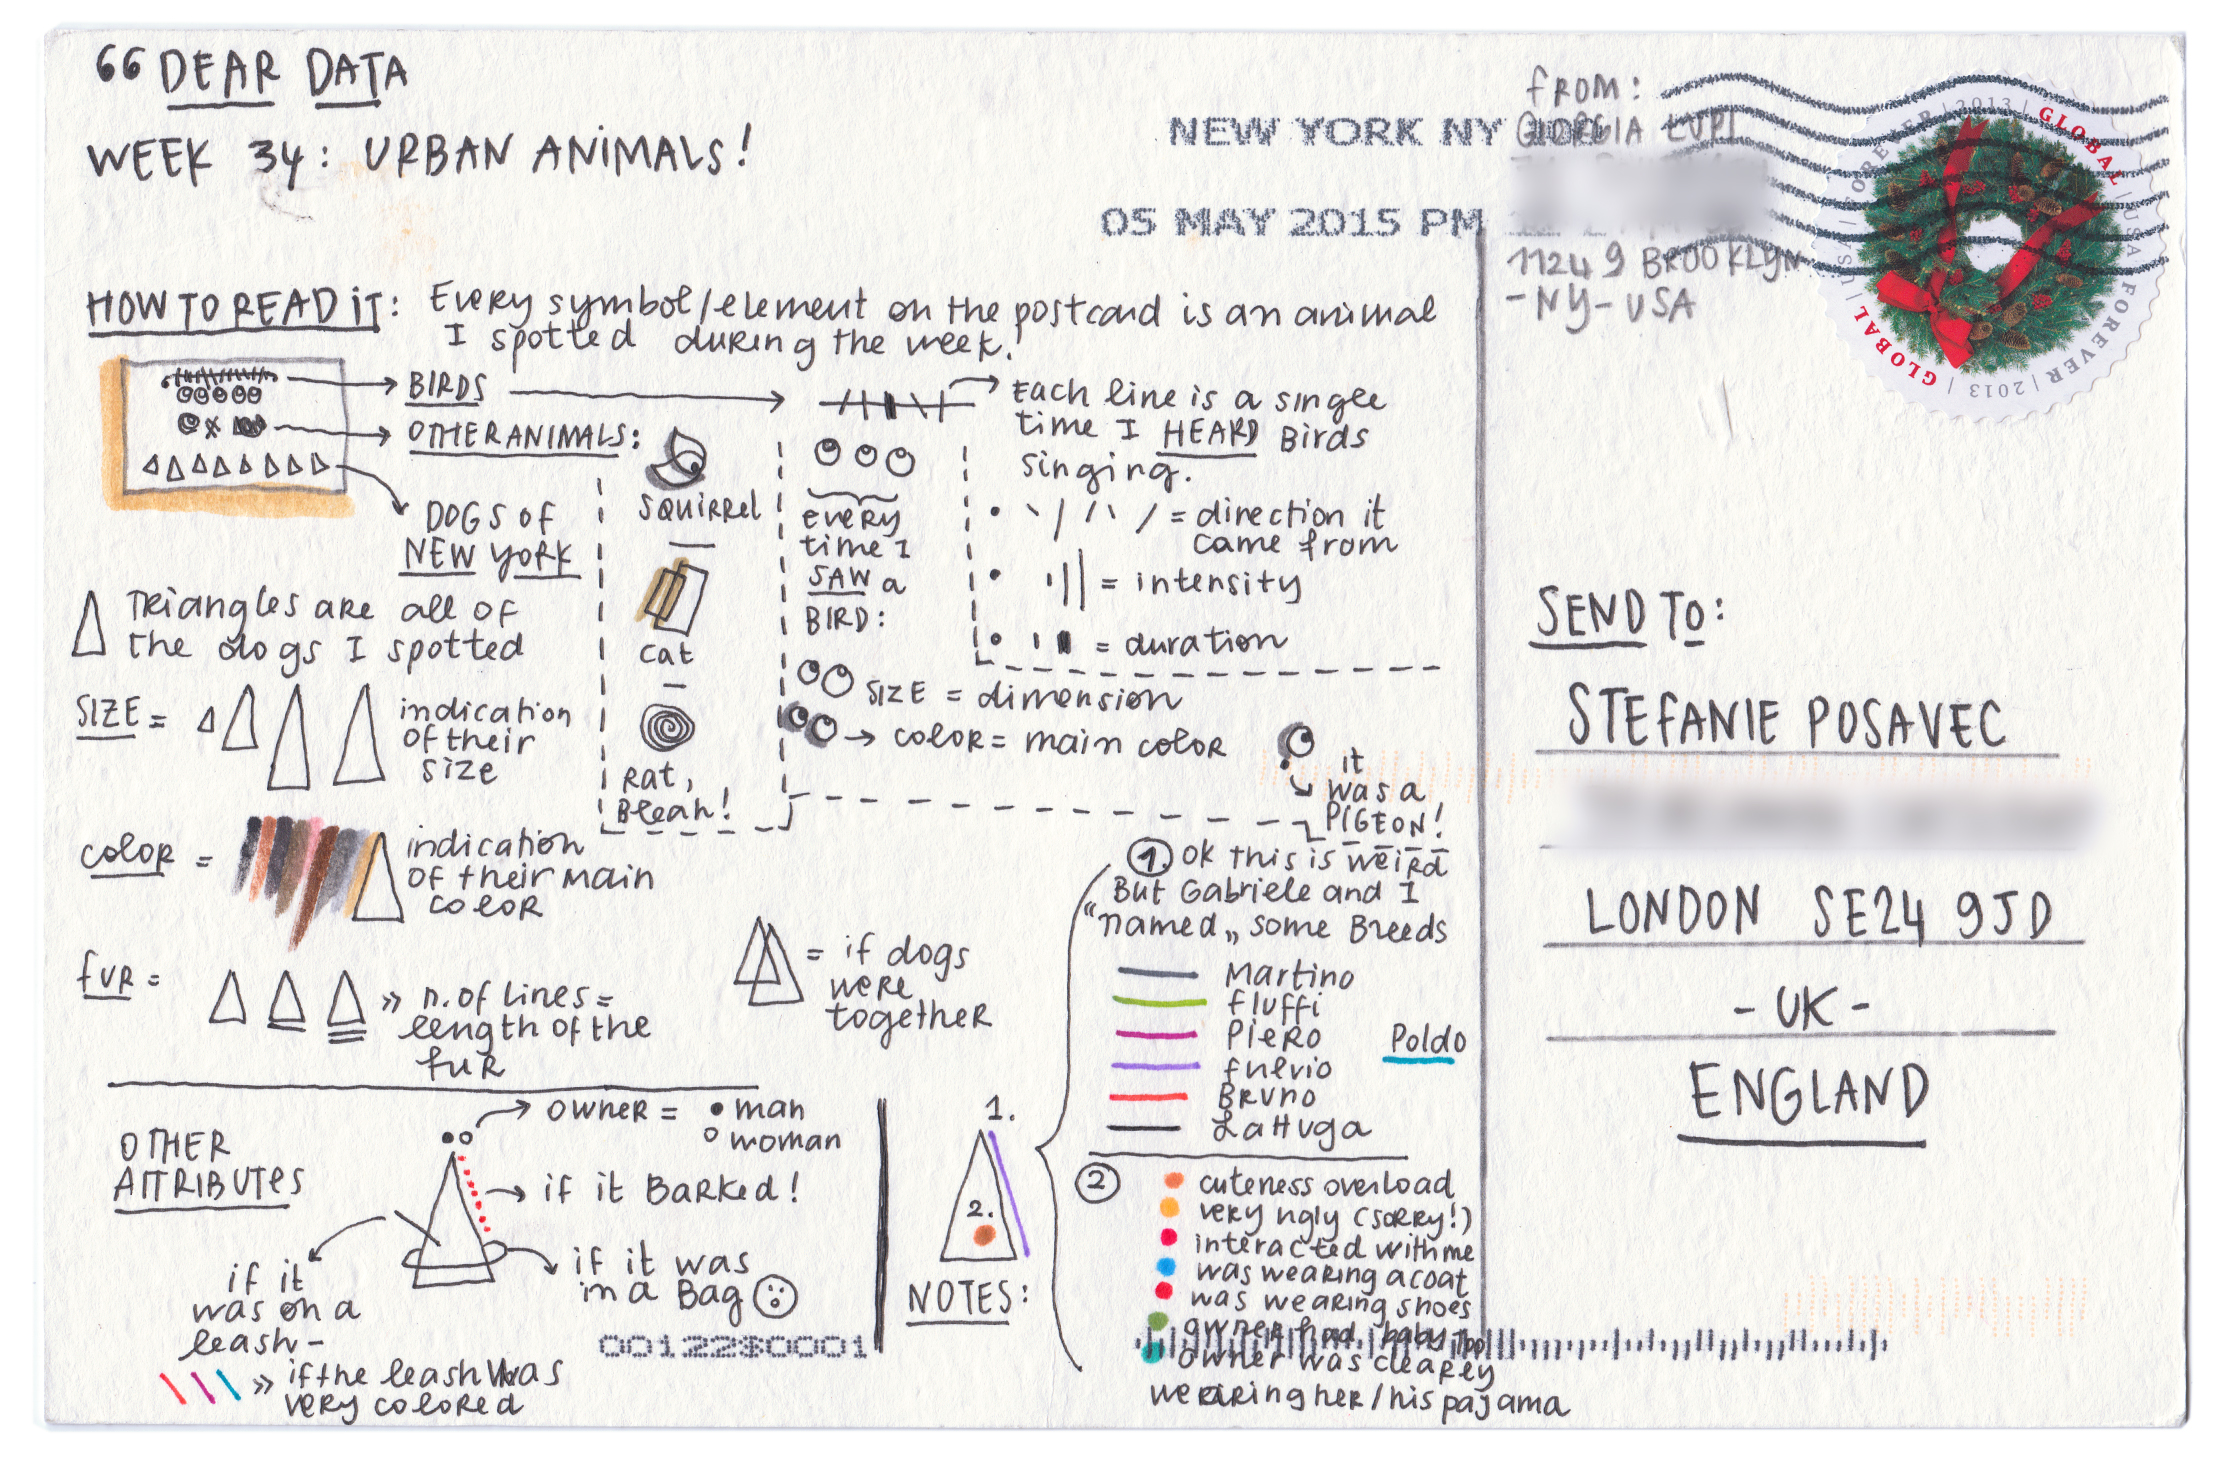 “ DEAR DATA
WEEK 34: URBAN ANIMALS!
NEW YORK NY
05 MAY 2015 PM
FROM:
GIORGIA LUPI
11249 BROOKLYN
-NY-USA
GLOBAL | USA FOREVER | 2013 | GLOBAL | USA FOREVER | 2013 |
HOW TO READ IT: Every symbol/element on the postcard is an animal
I spotted during the week!
BIRDS
OTHER ANIMALS:
DOGS of
NEW YORK
SQUIRREL
cat
Rat,
Bleah!
every
time I
SAW a
BIRD:
Each line is a single
time I HEARD Birds
singing.
= direction it
came from
= intensity
= duration
SIZE = dimension
COLOR = main color
it
was a
PIGEON!
TRiangles are all of
the dogs I spotted
SIZE =
indication
of their
size
COLOR =
indication
of their main
COLOR
fUR =
» n. of lines =
length of the
fuR
= if dogs
were
together
OTHER
ATTRIBUTES
owner =
man
woman
if it Barked!
if it was
in a Bag
if it
was on a
leash-
» if the leash was
very colored
1.
2.
NOTES:
1. OK this is weird
But Gabriele and I
“named„ some Breeds
Martino
fluffi
Piero
Poldo
fulvio
Bruno
LaHuga
2
cuteness overload
very ugly (sorry!)
interacted with me
was wearing a coat
was wearing shoes
owner had baby too
owner was clearly
wearing her/his pajama
00122$0001
SEND TO:
STEFANIE POSAVEC
LONDON SE24 9JD
- UK -
ENGLAND